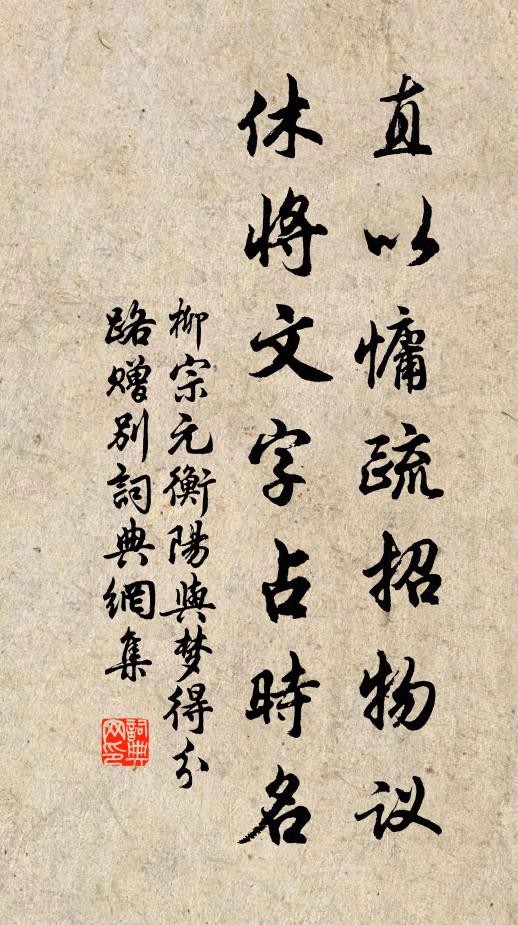 直以慵疏招物议
休将文字占時名
柳宗元衡陽與梦得分
路赠别詞典網集
詞典
网印